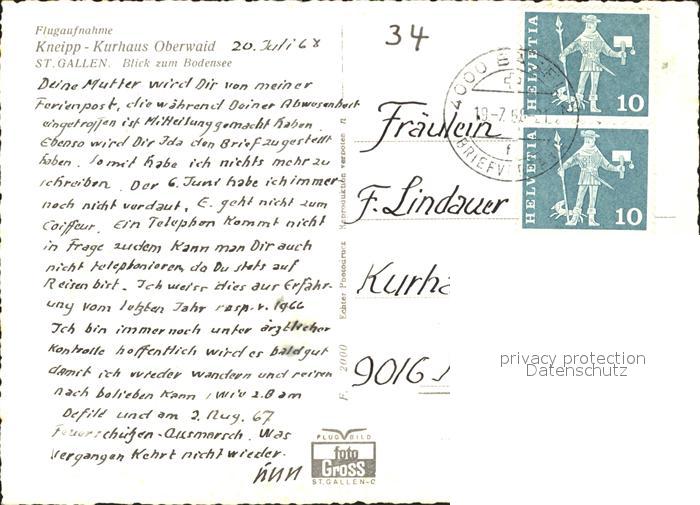 Flugaufnahme
Kneipp - Kurhaus Oberwaid 20. Juli 68
ST. GALLEN. Blick zum Bodensee
Deine Mutter wird Dir von meiner
Ferienpost, die während Deiner Abwesenheit
eingetroffen ist Mitteilung gemacht haben
Ebenso wird Dir Ida den Brief zugestellt
haben. Somit habe ich nichts mehr zu
schreiben. Der 6. Juni habe ich immer
noch nicht verdaut. E. geht nicht zum
Coiffeur. Ein Telephon kommt nicht
in Frage zudem kann man Dir auch
nicht telephonieren, da Du stets auf
Reisen bist. Ich weiss dies aus Erfahr-
ung vom letzten Jahr resp. v. 1966
Ich bin immer noch unter ärztlicher
Kontrolle hoffentlich wird es bald gut
damit ich wieder wandern und reisen
nach belieben kann, wie z.B am
Defilé und am 2. Aug. 67
Feuerschützen-Ausmarsch. Was
vergangen kehrt nicht wieder.
FLUGBILD
foto
Gross
ST. GALLEN-C
F. 2000 Echter Photodruck Reproduktion verboten
34
4000 BASEL
BRIEFV
HELVETIA 10
HELVETIA 10
Fräulein
F. Lindauer
Kurha
9016
privacy protection
Datenschutz